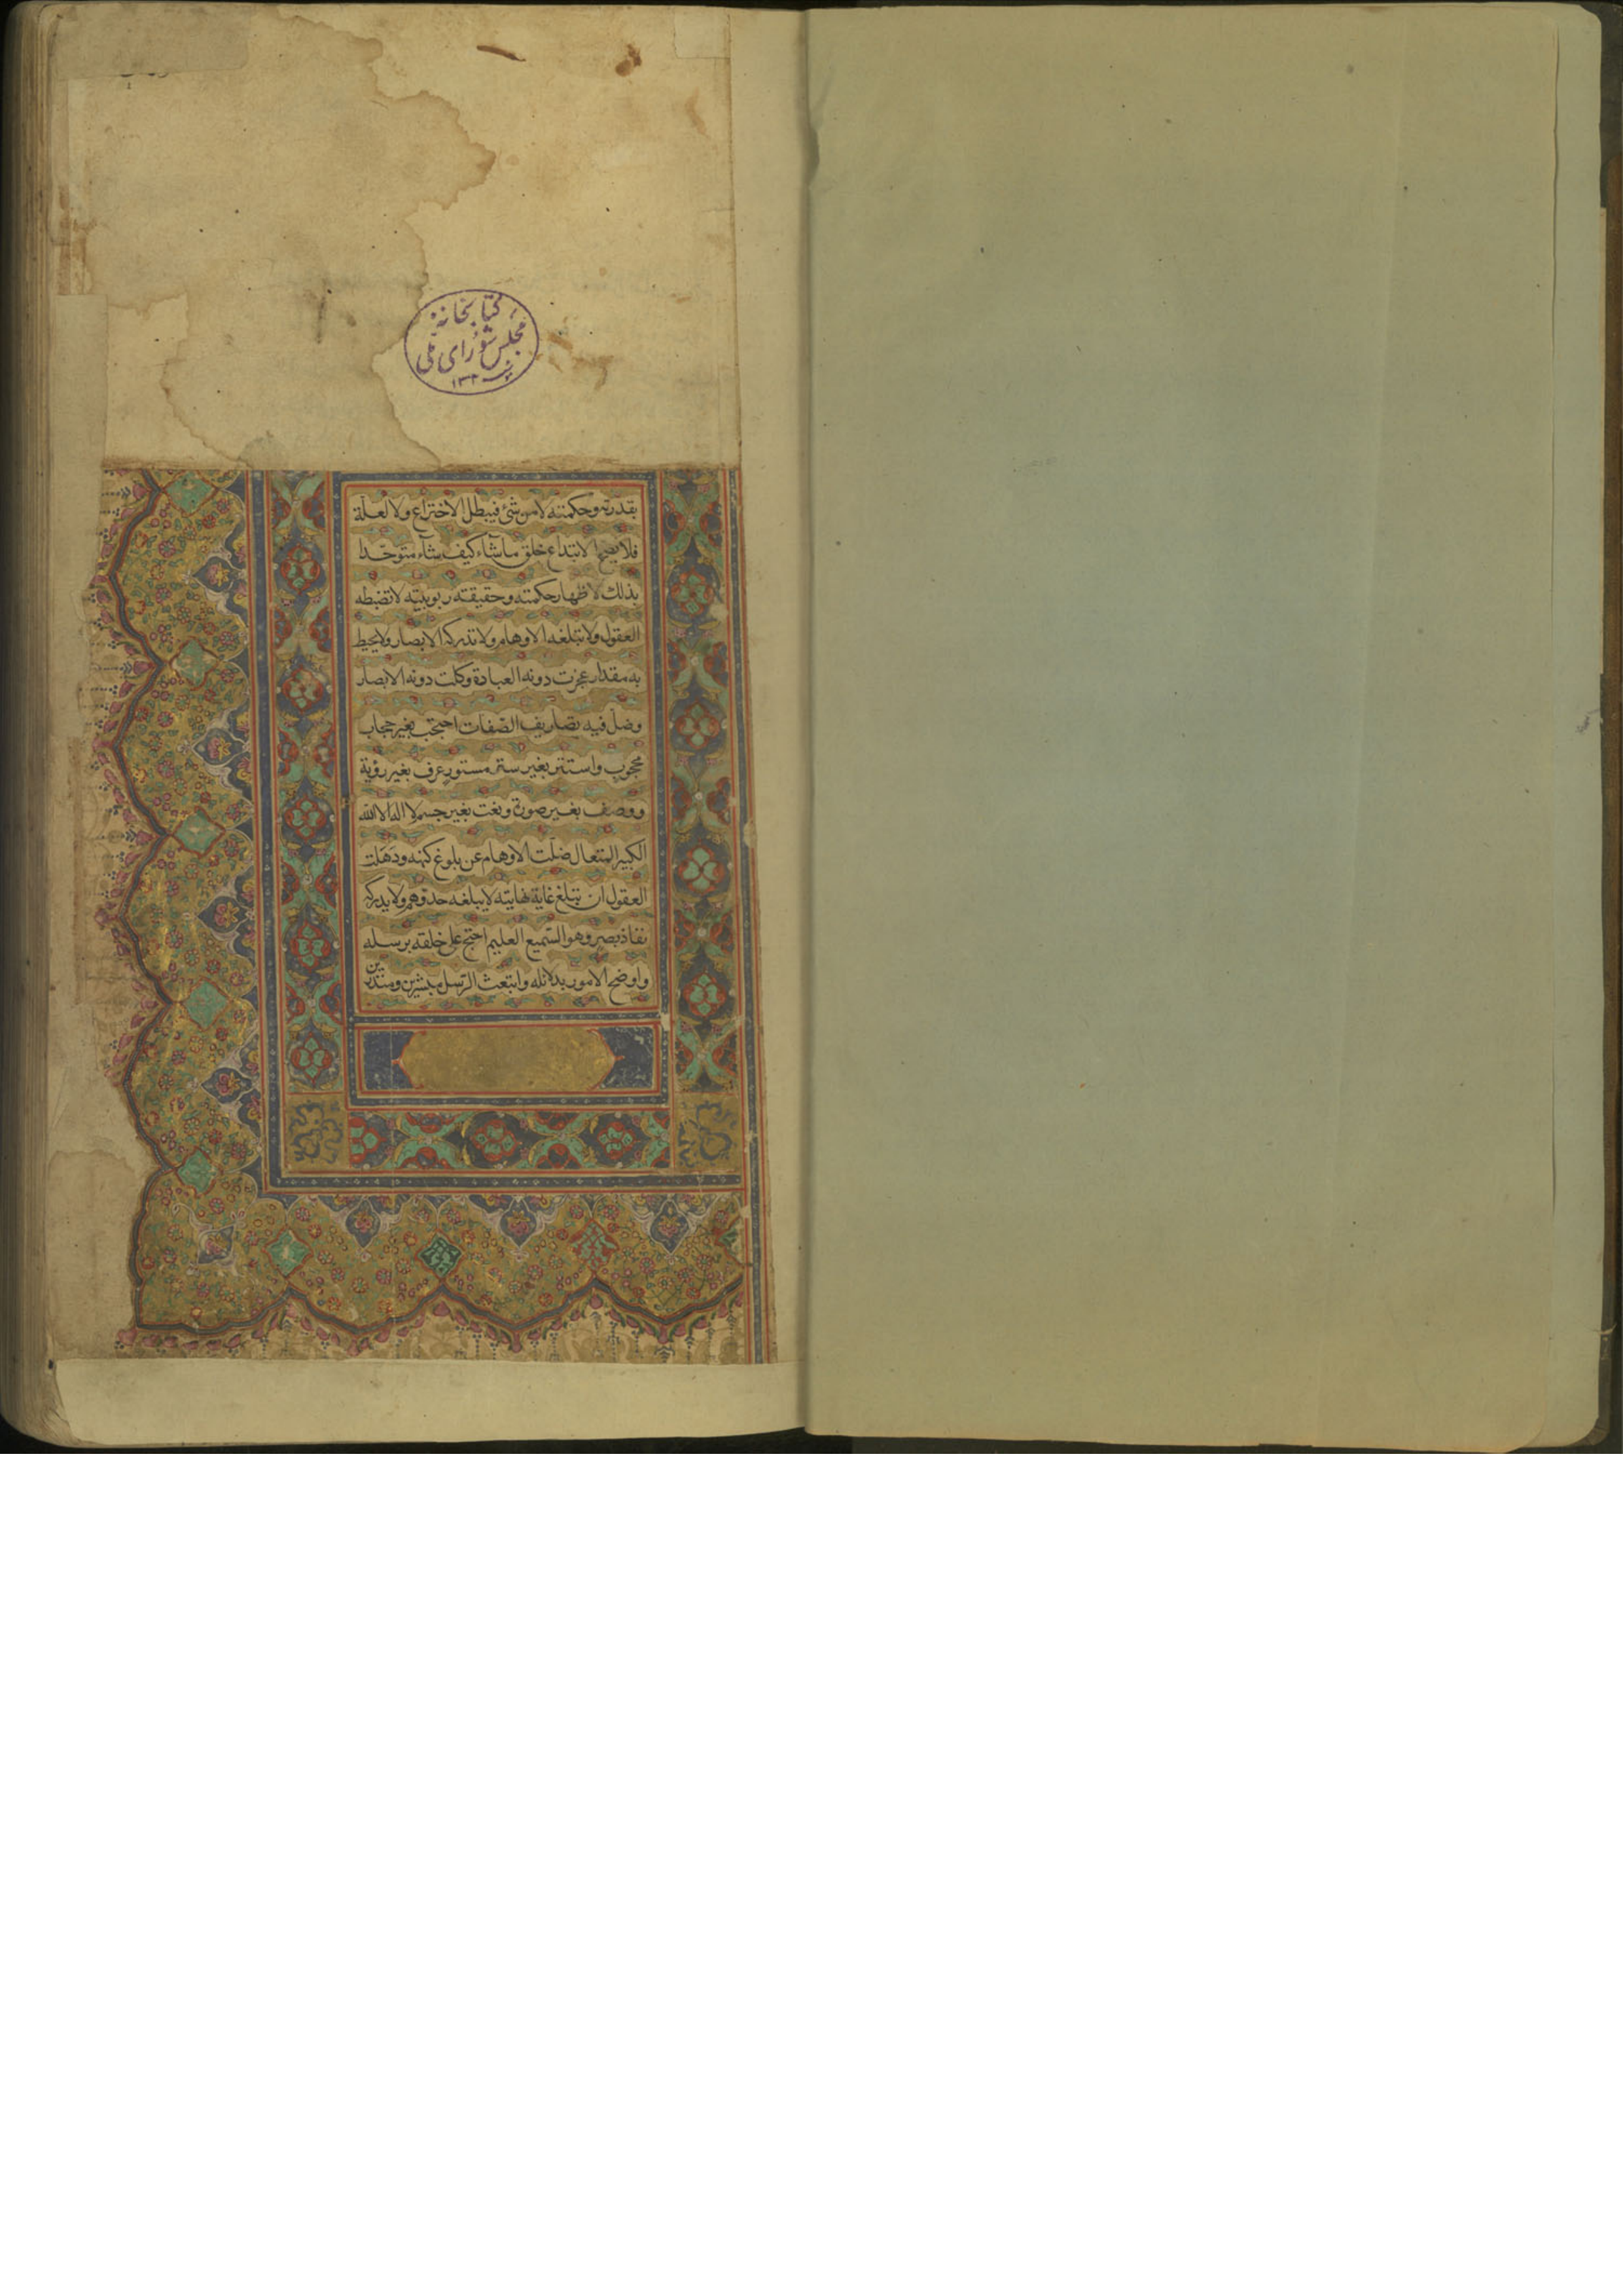 كتابخانهٔ
مجلس شورای ملی
بقدرته وحكمته لا من شئ فيبطل الاختراع ولا لعلّة
فلا يصح الابتداع خلق ما شآء كيف شآء متوحّدا
بذلك لاظهار حكمته وحقيقته ربوبيّته لا تضبطه
العقول ولا تبلغه الاوهام ولا تدركه الابصار ولا يحيط
به مقدار عجزت دونه العبادة وكلت دونه الابصار
وضلّ فيه تصاريف الصّفات احتجب بغير حجاب
محجوب واستتر بغير ستر مستور عرف بغير رؤية
ووصف بغير صورة ونعت بغير جسم لا اله الا الله
الكبير المتعال ضلّت الاوهام عن بلوغ كنهه وذهلت
العقول ان تبلغ غاية نهايته لا يبلغه حدّ وهم ولا يدركه
نفاذ بصر وهو السّميع العليم احتج على خلقه برسله
واوضح الامور بدلائله وابتعث الرّسل مبشرين ومنذرين